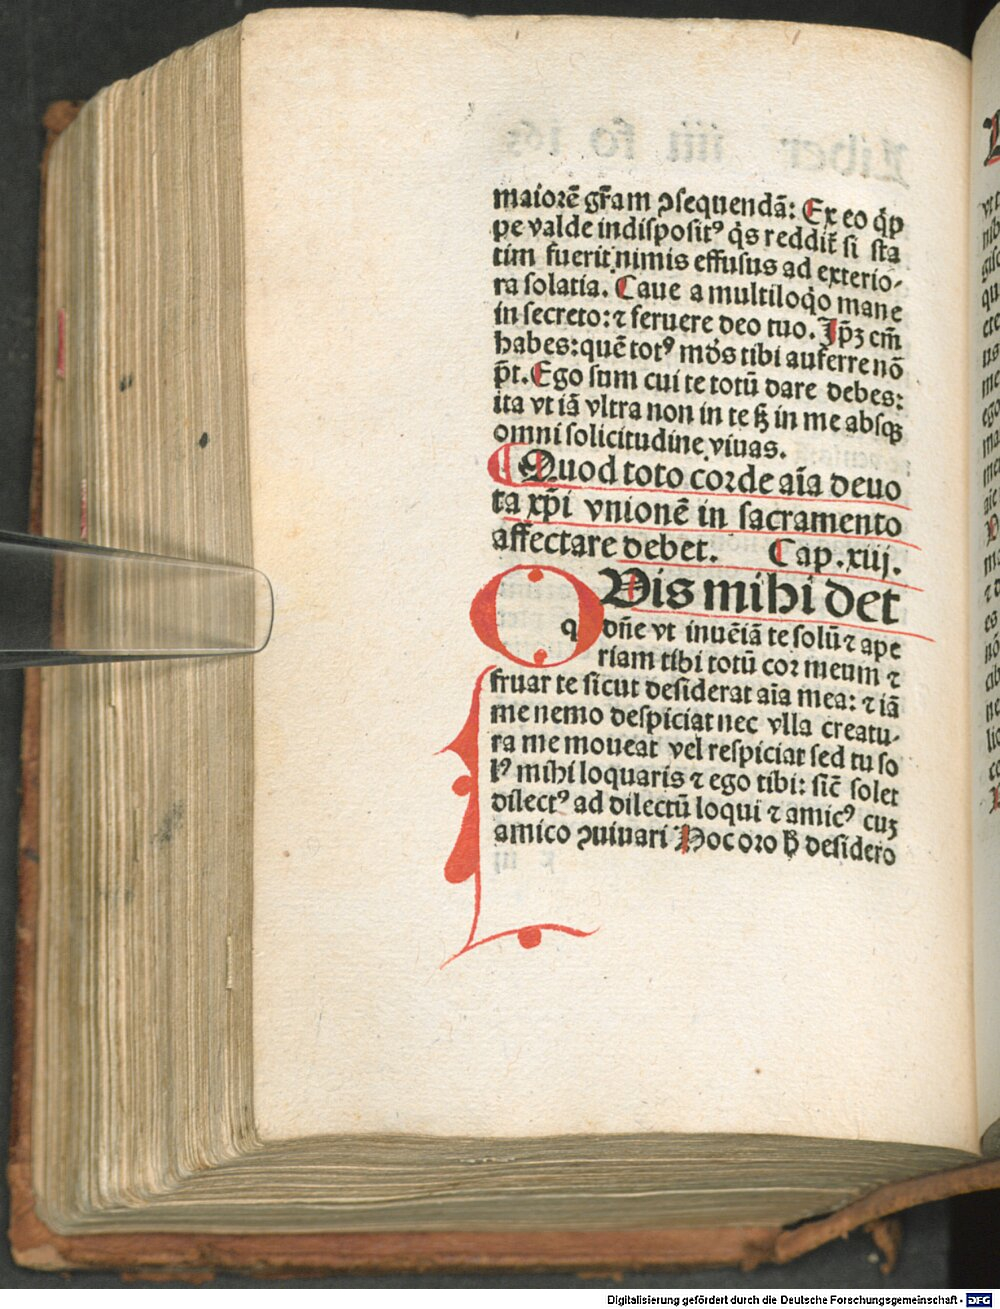 maiorē gr̄am ꝯsequendā: Ex eo q̇p
pe valde indisposit⁹ q̇s reddit̄ si sta
tim fuerit nimis effusus ad exterio-
ra solatia. Caue a multiloq̇o mane
in secreto: ⁊ feruere deo tuo. Ip̄ꝫ em̄
habes: quē tot⁹ mūds tibi auferre nō
p̄t. Ego sum cui te totū dare debes:
ita vt iā vltra non in te sꝫ in me absqꝫ
omni solicitudine viuas.
Quod toto corde aīa deuo
ta xp̄i vnionē in sacramento
affectare debet. Cap. xiij.
QVis mihi det
q dn̄e vt inuēiā te solū ⁊ ape
riam tibi totū cor meum ⁊
fruar te sicut desiderat aīa mea: ⁊ iā
me nemo despiciat nec vlla creatu-
ra me moueat vel respiciat sed tu so
l⁹ mihi loquaris ⁊ ego tibi: sic̄ solet
dilect⁹ ad dilectū loqui ⁊ amic⁹ cuꝫ
amico ꝯuiuari Hoc oro h̄ desidero
Digitalisierung gefördert durch die Deutsche Forschungsgemeinschaft - DFG